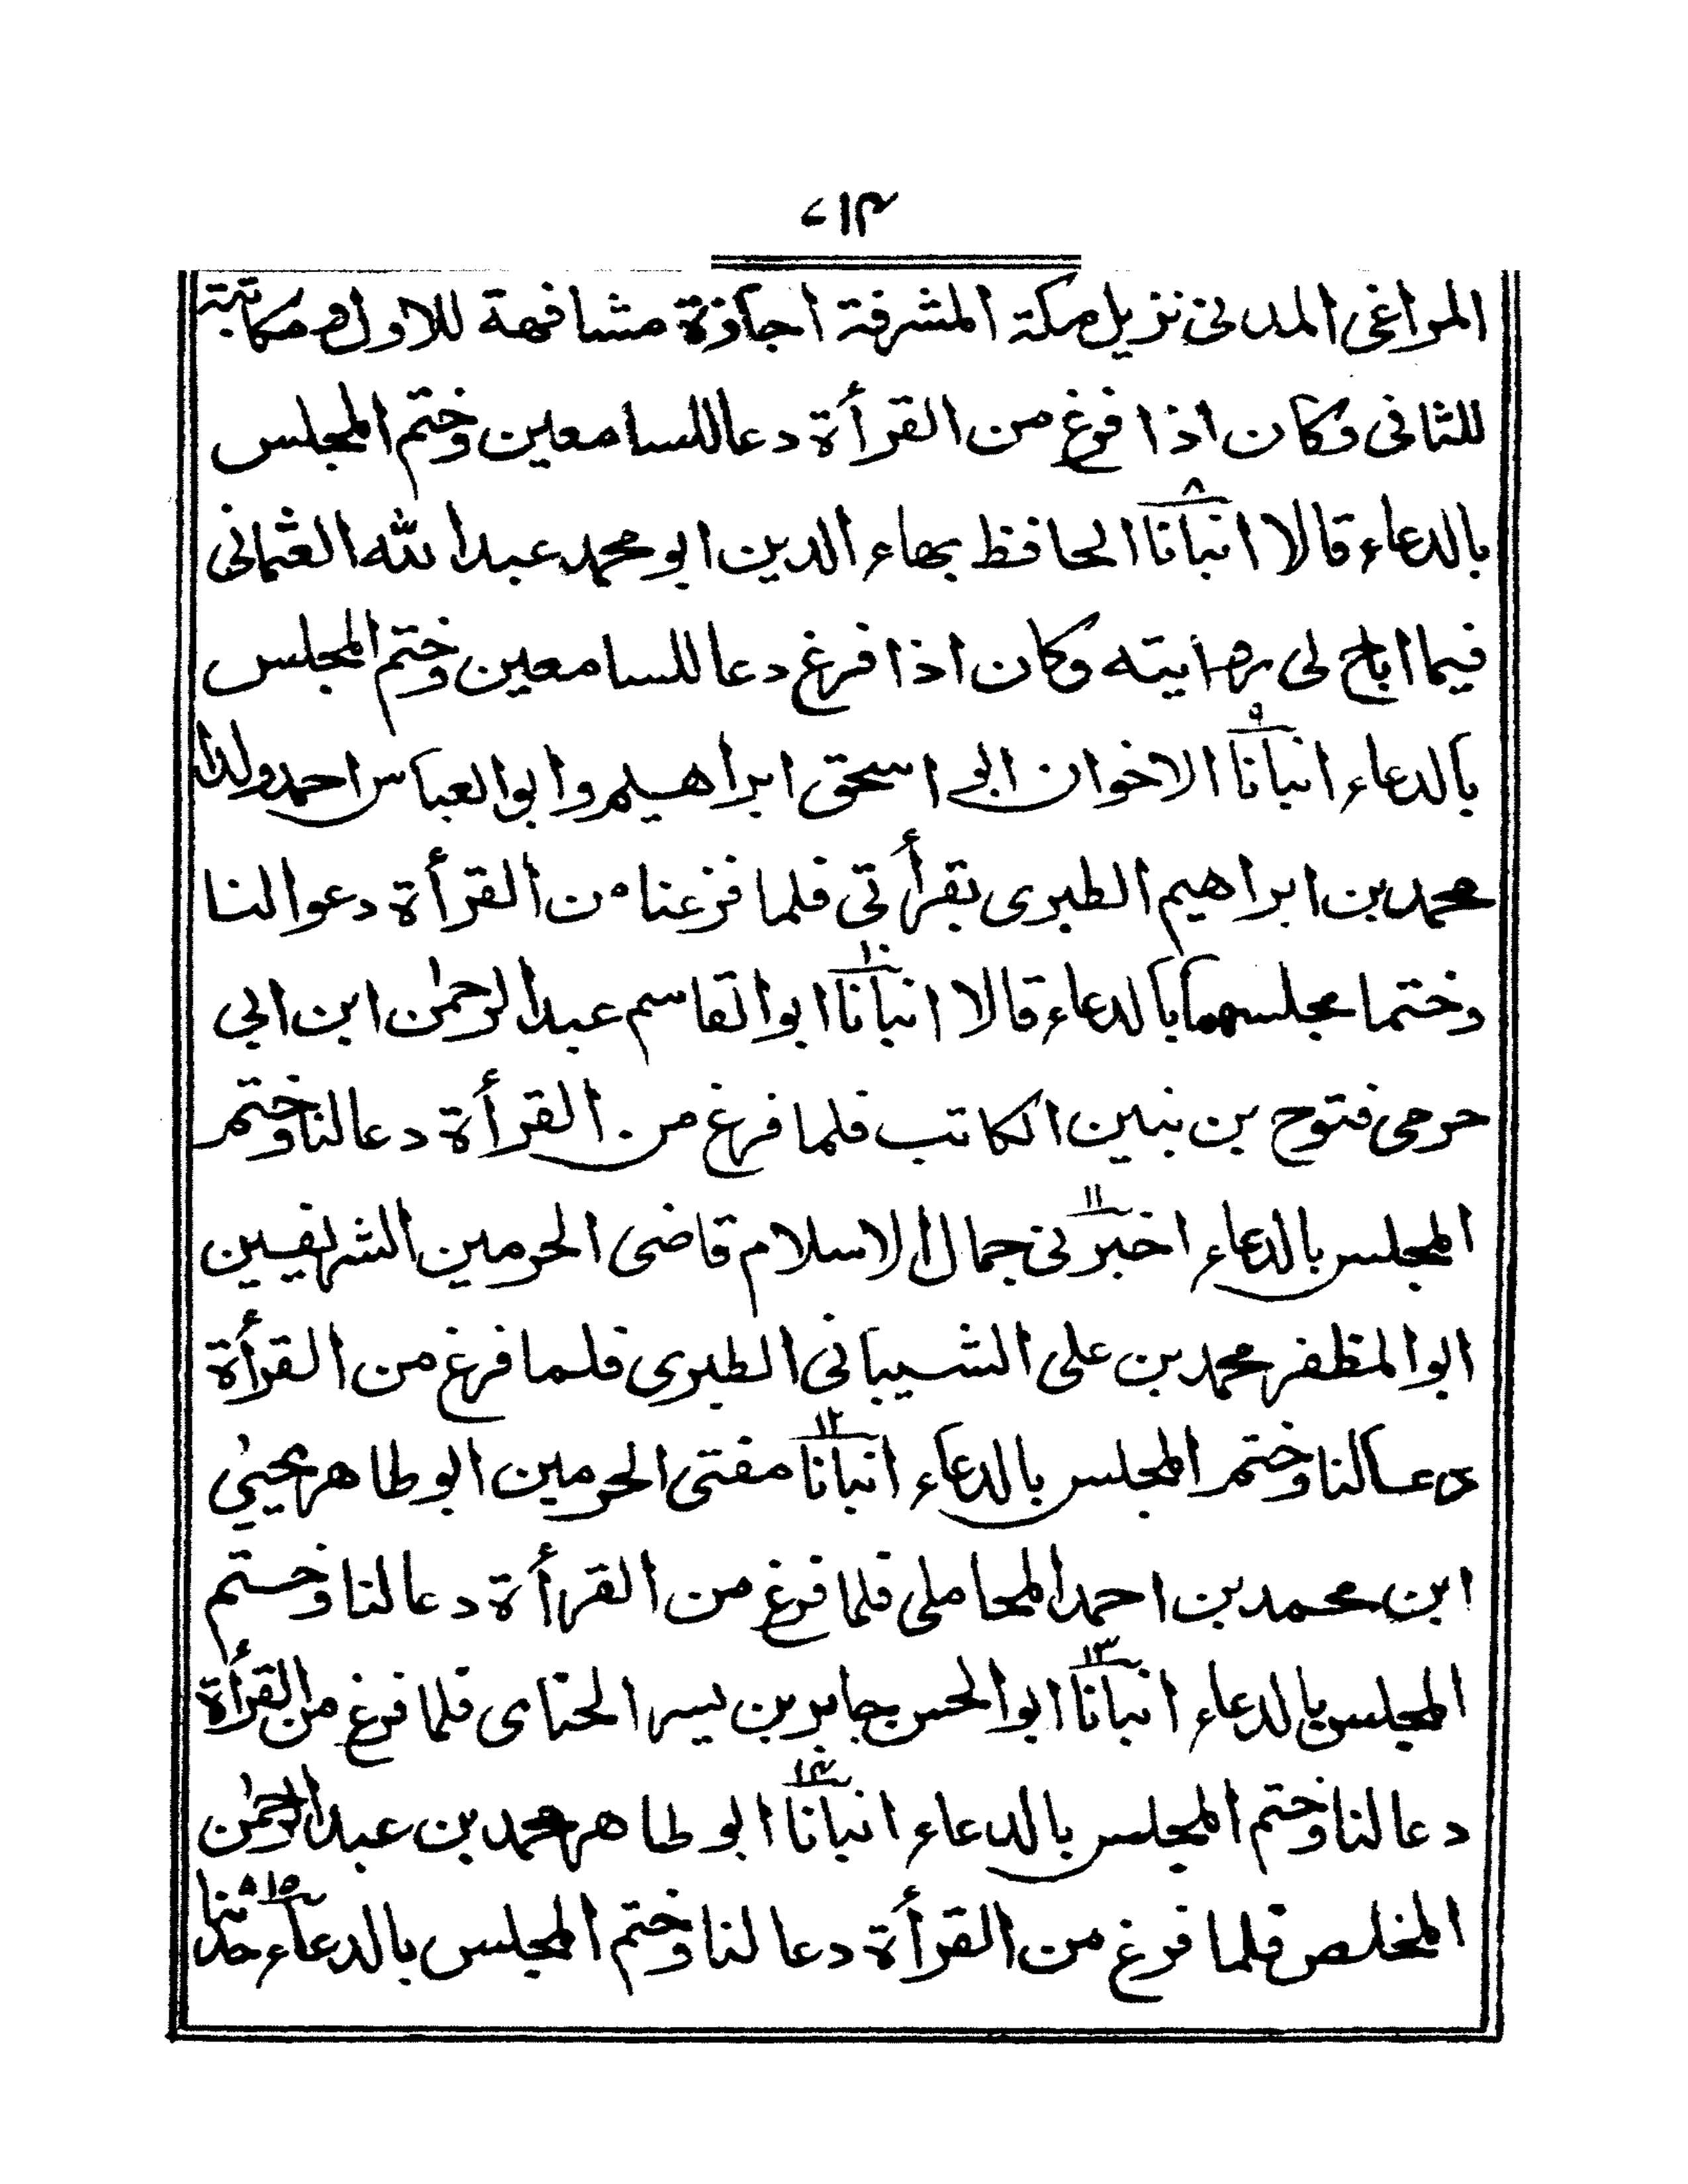 ۱۴
المراغی المدنی نزیل مکة المشرفة اجازة مشافهة للاول و مکاتبة
للثانی وکان اذا فرغ من القرأة دعا للسامعین وختم المجلس
۸
بالدعاء قالا انبأنا الحافظ بهاء الدین ابو محمد عبد الله العثمانی
فیما اباح لی روایته وکان اذا فرغ دعا للسامعین وختم المجلس
۹
بالدعاء انبأنا الاخوان ابی اسحق ابراهیم وابو العباس احمد ولدا
محمد بن ابراهیم الطبری بقرأتی فلما فرغنا من القرأة دعوا لنا
۱۰
وختما مجلسهما بالدعاء قالا انبأنا ابو القاسم عبد الرحمٰن ابن ابی
حرمی فتوح بن بنین الکاتب فلما فرغ من القرأة دعا لنا وختم
۱۱
المجلس بالدعاء اخبرنی جمال الاسلام قاضی الحرمین الشریفین
ابو المظفر محمد بن علی الشیبانی الطبری فلما فرغ من القرأة
۱۲
دعا لنا وختم المجلس بالدعاء انبأنا مفتی الحرمین ابو طاهر یحییٰ
ابن محمد بن احمد المحاملی فلما فرغ من القرأة دعا لنا وختم
۱۳
المجلس بالدعاء انبأنا ابو الحسن جابر بن یسر الحنای فلما فرغ من القرأة
۱۴
دعا لنا وختم المجلس بالدعاء انبأنا ابو طاهر محمد بن عبد الرحمٰن
۱۵
المخلص فلما فرغ من القرأة دعا لنا وختم المجلس بالدعاء حدثنا